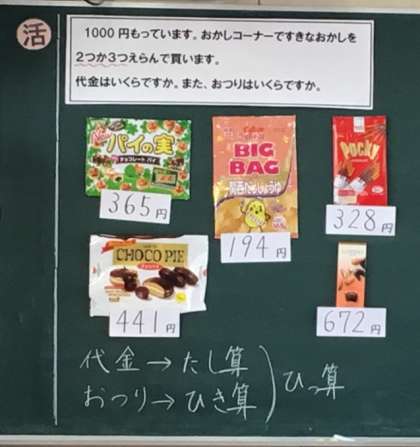 活
1000円もっています。おかしコーナーですきなおかしを
2つか3つえらんで買います。
代金はいくらですか。また、おつりはいくらですか。
パイの実
チョコレート パイ
365円
BIG
BAG
194円
POCKY
328円
CHOCO PIE
441円
672円
代金→たし算
おつり→ひき算
ひっ算